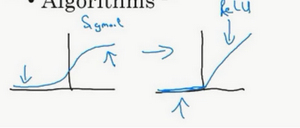 • Algorithms
Sigmoid
ReLU